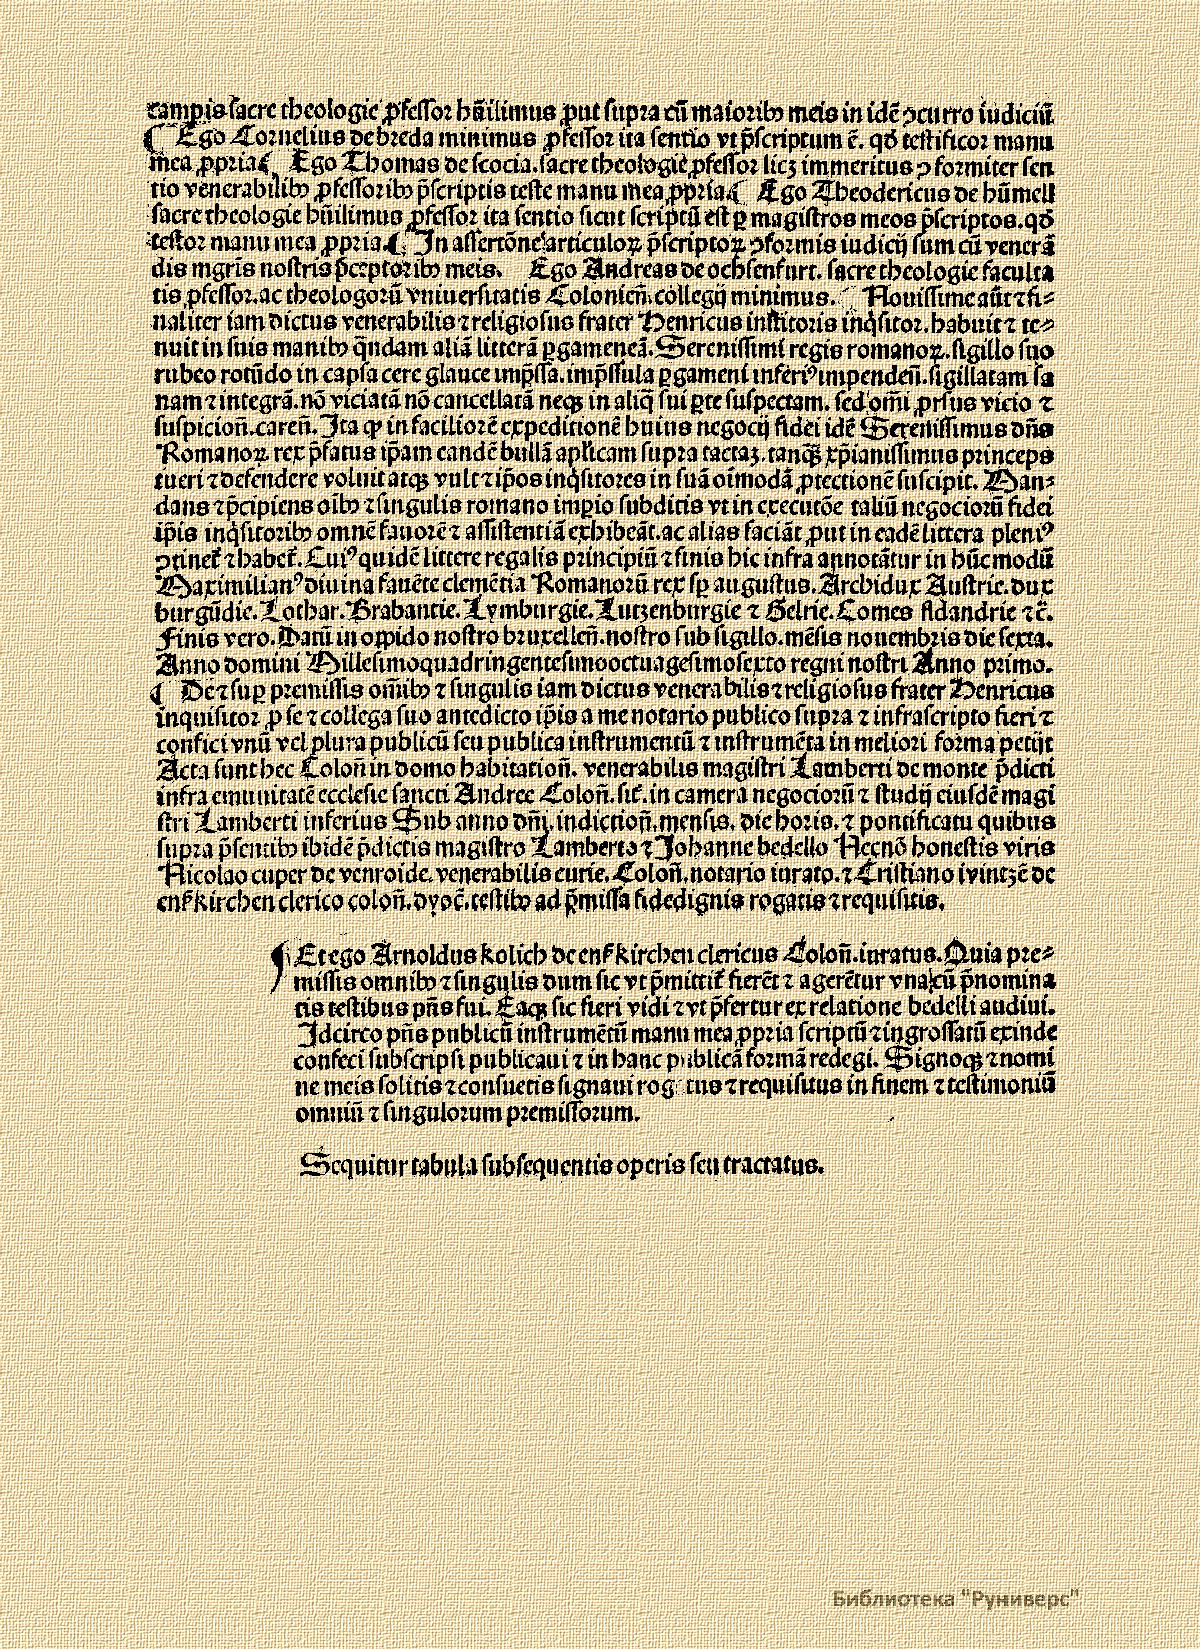 campis sacre theologie ꝓfessor hūilimus ꝓut supra cū maioribꝰ meis in idē ↄcurro iudiciū.
Ego Cornelius de breda minimus ꝓfessor ita sentio vt p̄scriptum ē. qd̄ testificor manu
mea ꝓpria. Ego Thomas de scocia. sacre theologie ꝓfessor licꝫ immeritus ↄformiter sen
tio venerabilibꝰ ꝓfessoribꝰ p̄scriptis teste manu mea ꝓpria. Ego Theodericus de hūmell
sacre theologie hūilimus ꝓfessor ita sentio sicut scriptū est ꝑ magistros meos p̄scriptos. qd̄
testor manu mea ꝓpria. In assertōne articuloꝝ p̄scriptoꝝ ↄformis iudicij sum cū venerā
dis mgrīs nostris p̄ceptoribꝰ meis. Ego Andreas de ochsenfurt. sacre theologie faculta
tis ꝓfessor. ac theologorū vniuersitatis Colonieñ. collegij minimus. Nouissime aūt ⁊ fi⸗
naliter iam dictus venerabilis ⁊ religiosus frater Henricus institoris inq̄sitor. habuit ⁊ te⸗
nuit in suis manibꝰ q̄ndam aliā litterā ꝑgameneā. Serenissimi regis romanoꝝ. sigillo suo
rubeo rotūdo in capsa cere glauce imp̄ssa. imp̄ssula ꝑgameni inferiꝰ impendeñ. sigillatam sa
nam ⁊ integrā. nō viciatā nō cancellatā neqꝫ in aliq̄ sui ꝑte suspectam. sed om̄i ꝓrsus vicio ⁊
suspicioñ. careñ. Ita ꝙ in faciliorē expeditionē huius negocij fidei idē Serenissimus dn̄s
Romanoꝝ rex p̄fatus ip̄am eandē bullā aplicam supra tactaꝫ. tanqꝫ xp̄ianissimus princeps
tueri ⁊ defendere voluit atqꝫ vult ⁊ ip̄os inq̄sitores in suā oīmodā ꝓtectionē suscipit. Man⸗
dans ⁊ p̄cipiens oībꝰ ⁊ singulis romano imꝑio subditis vt in executōe taliū negociorū fidei
ip̄is inq̄sitoribꝰ omnē fauorē ⁊ assistentiā exhibeāt. ac alias faciāt ꝓut in eadē littera pleniꝰ
ↄtinet̄ ⁊ habet̄. Cuiꝰ quidē littere regalis principiū ⁊ finis hic infra annotātur in hūc modū
Maximilianꝰ diuina fauēte clemētia Romanorū rex sꝑ augustus. Archidux Austrie. dux
burgūdie. Lothar. Brabantie. Lymburgie. Lutzenburgie ⁊ Gelrie. Comes flandrie ⁊c̄.
Finis vero. Datū in oppido nostro bruxelleñ. nostro sub sigillo. mēsis nouembris die sexta.
Anno domini Millesimoquadringentesimooctuagesimosexto regni nostri Anno primo.
De ⁊ suꝑ premissis om̄ibꝰ ⁊ singulis iam dictus venerabilis ⁊ religiosus frater Henricus
inquisitor ꝓ se ⁊ collega suo antedicto ip̄is a me notario publico supra ⁊ infrascripto fieri ⁊
confici vnū vel plura publicū seu publica instrumentū ⁊ instrumēta in meliori forma petijt
Acta sunt hec Coloñ in domo habitatioñ. venerabilis magistri Lamberti de monte p̄dicti
infra emunitatē ecclesie sancti Andree Coloñ. sit̄. in camera negociorū ⁊ studij eiusdē magi
stri Lamberti inferius Sub anno dn̄i, indictioñ, mensis, die horis. ⁊ pontificatu quibus
supra p̄sentibꝰ ibidē p̄dictis magistro Lamberto ⁊ Johanne bedello Necnō honestis viris
Nicolao cuper de venroide. venerabilis curie. Coloñ. notario iurato. ⁊ Cristiano wintzē de
enf̄kirchen clerico coloñ. dyoc̄. testibꝰ ad p̄missa fidedignis rogatis ⁊ requisitis.
Et ego Arnoldus kolich de enf̄kirchen clericus Coloñ. iuratus. Quia pre⸗
missis omnibꝰ ⁊ singulis dum sic vt p̄mittit̄ fierēt ⁊ agerētur vna cū p̄nomina
tis testibus pn̄s fui. Eaqꝫ sic fieri vidi ⁊ vt p̄fertur ex relatione bedelli audiui.
Idcirco pn̄s publicū instrumētū manu mea ꝓpria scriptū ⁊ ingrossatū exinde
confeci subscripsi publicaui ⁊ in hanc publicā formā redegi. Signoqꝫ ⁊ nomi
ne meis solitis ⁊ consuetis signaui rogatus ⁊ requisitus in finem ⁊ testimoniū
omniū ⁊ singulorum premissorum.
Sequitur tabula subsequentis operis seu tractatus.
Библиотека "Руниверс"